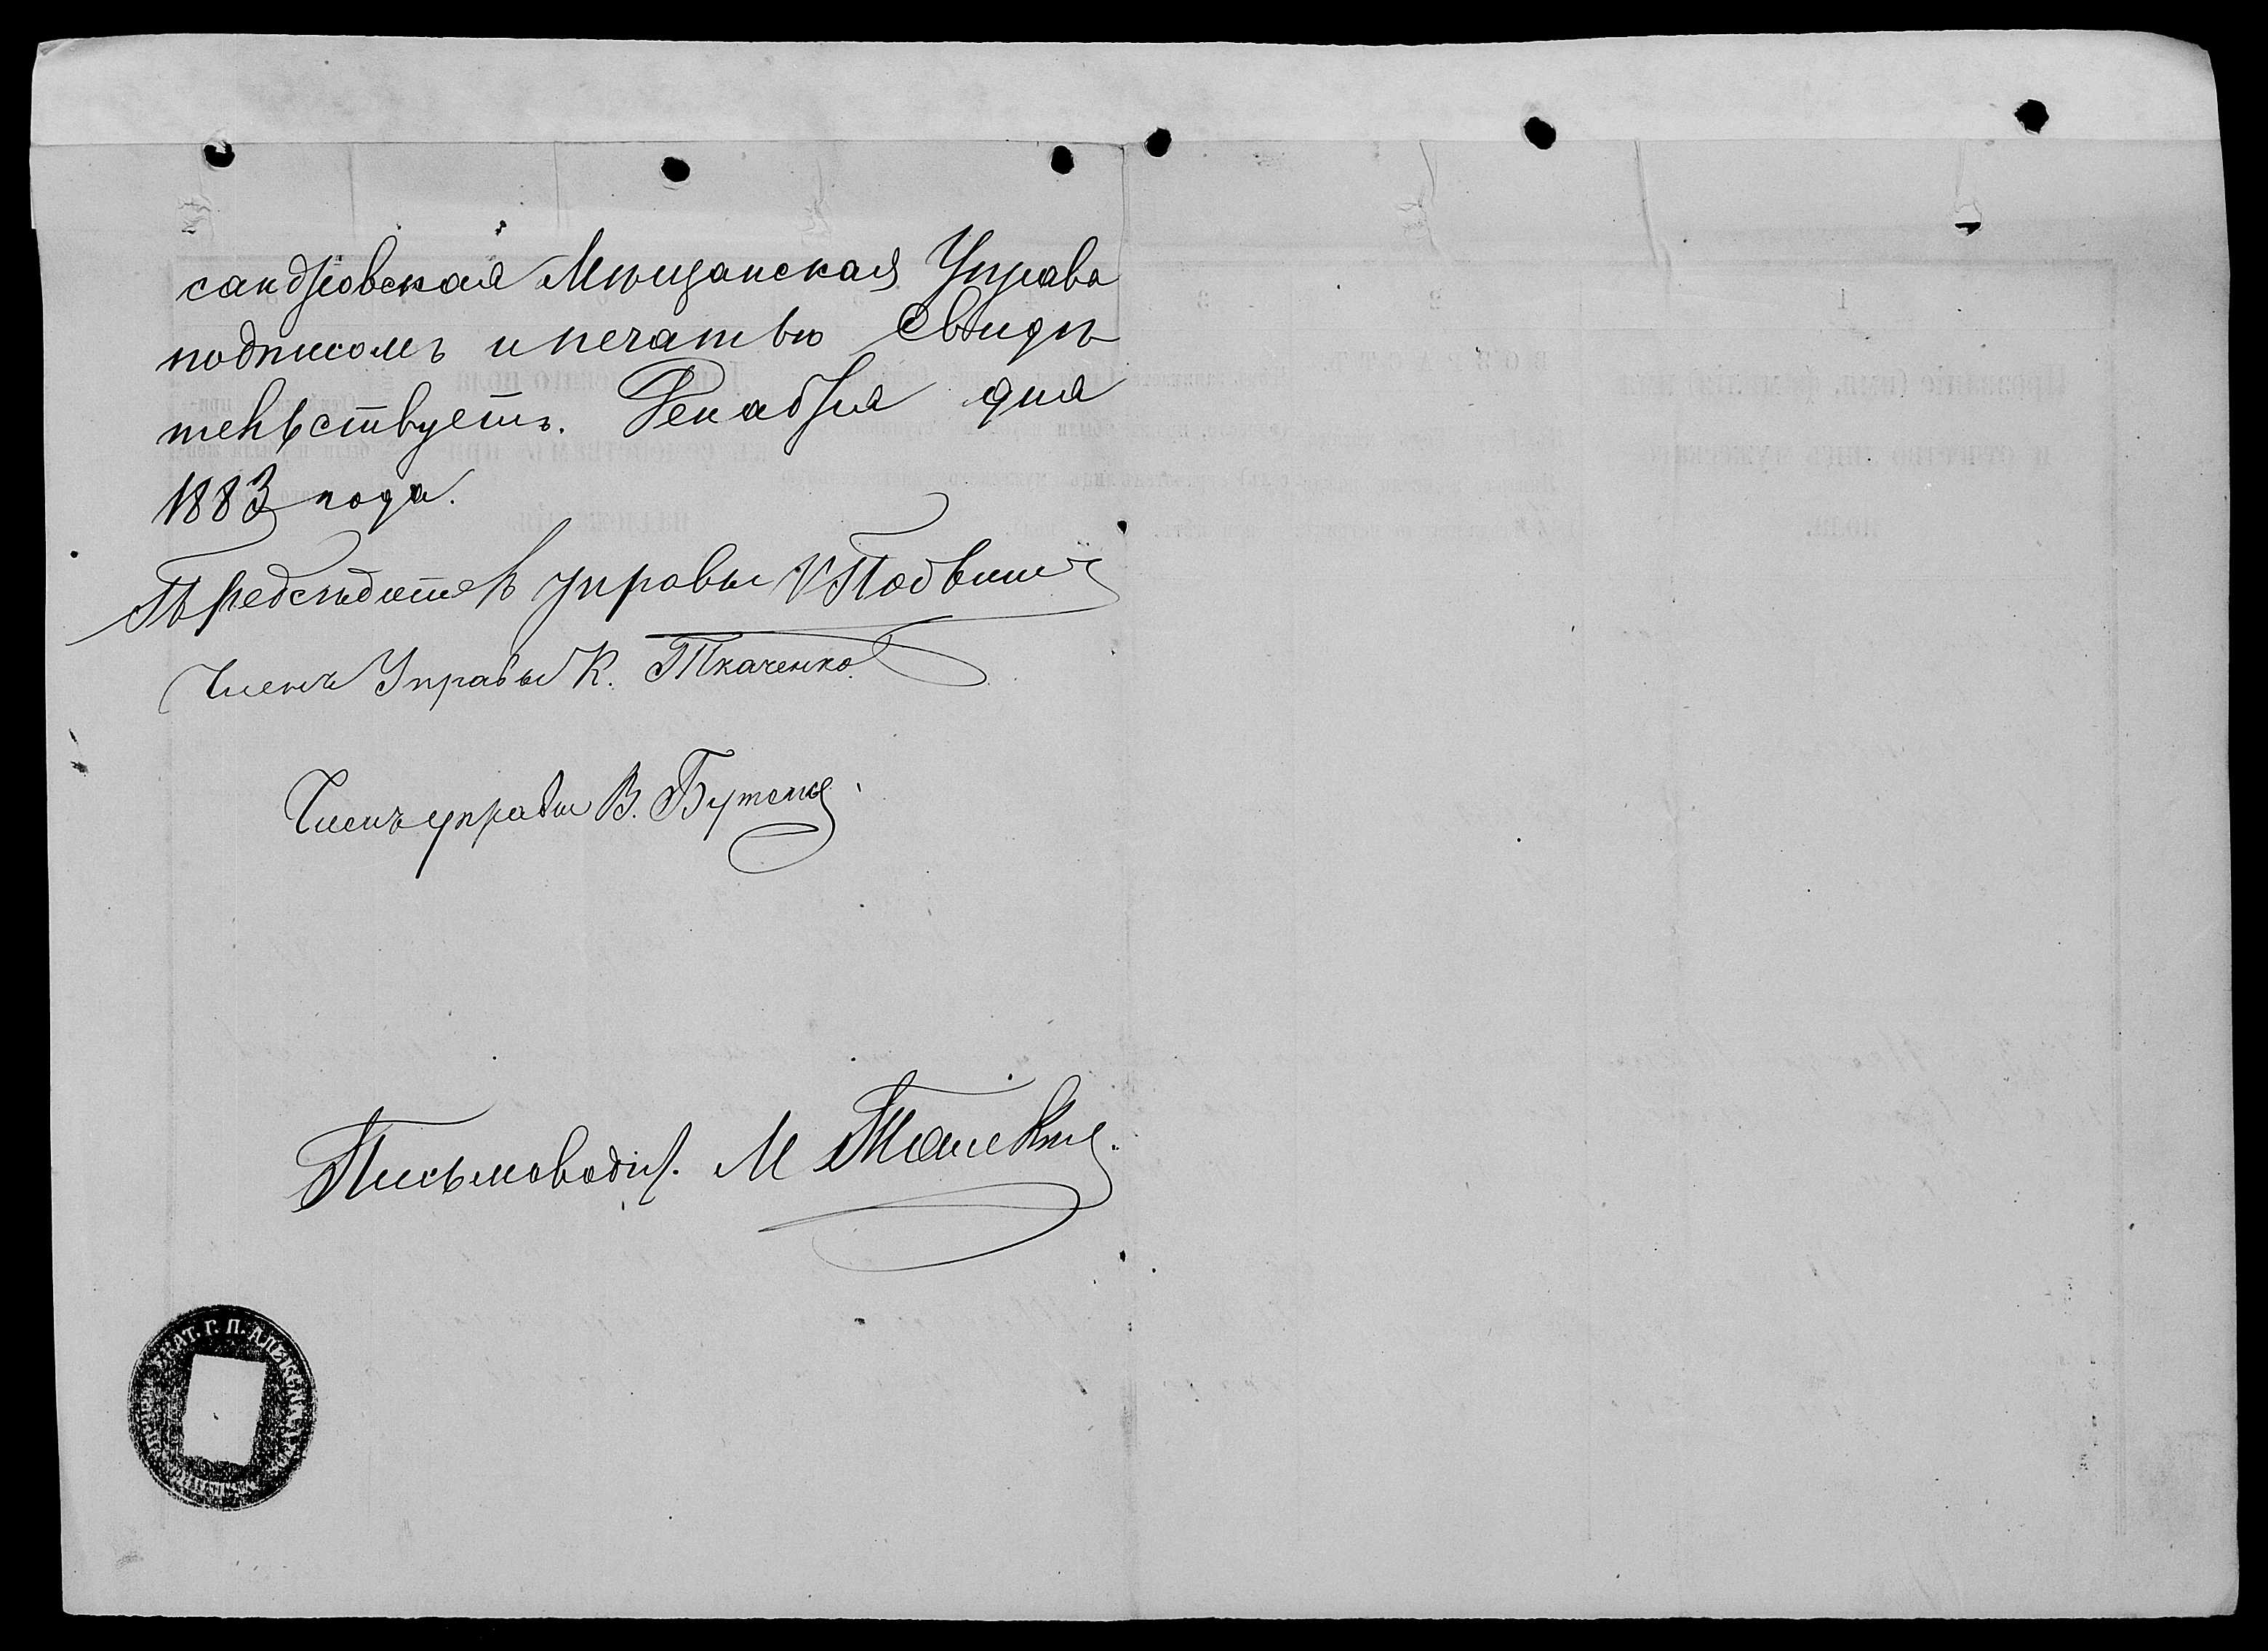 сандровская Мѣщанская Управа
подписомъ и печатью Свидѣ
тельствуетъ. Декабря дня
1883 года.
Предсѣдатель управы
Членъ Управы К. Ткаченко.
Членъ управы В. Бутенко
Письмоводит. М
ЕКАТ. Г. П. АЛЕКСА